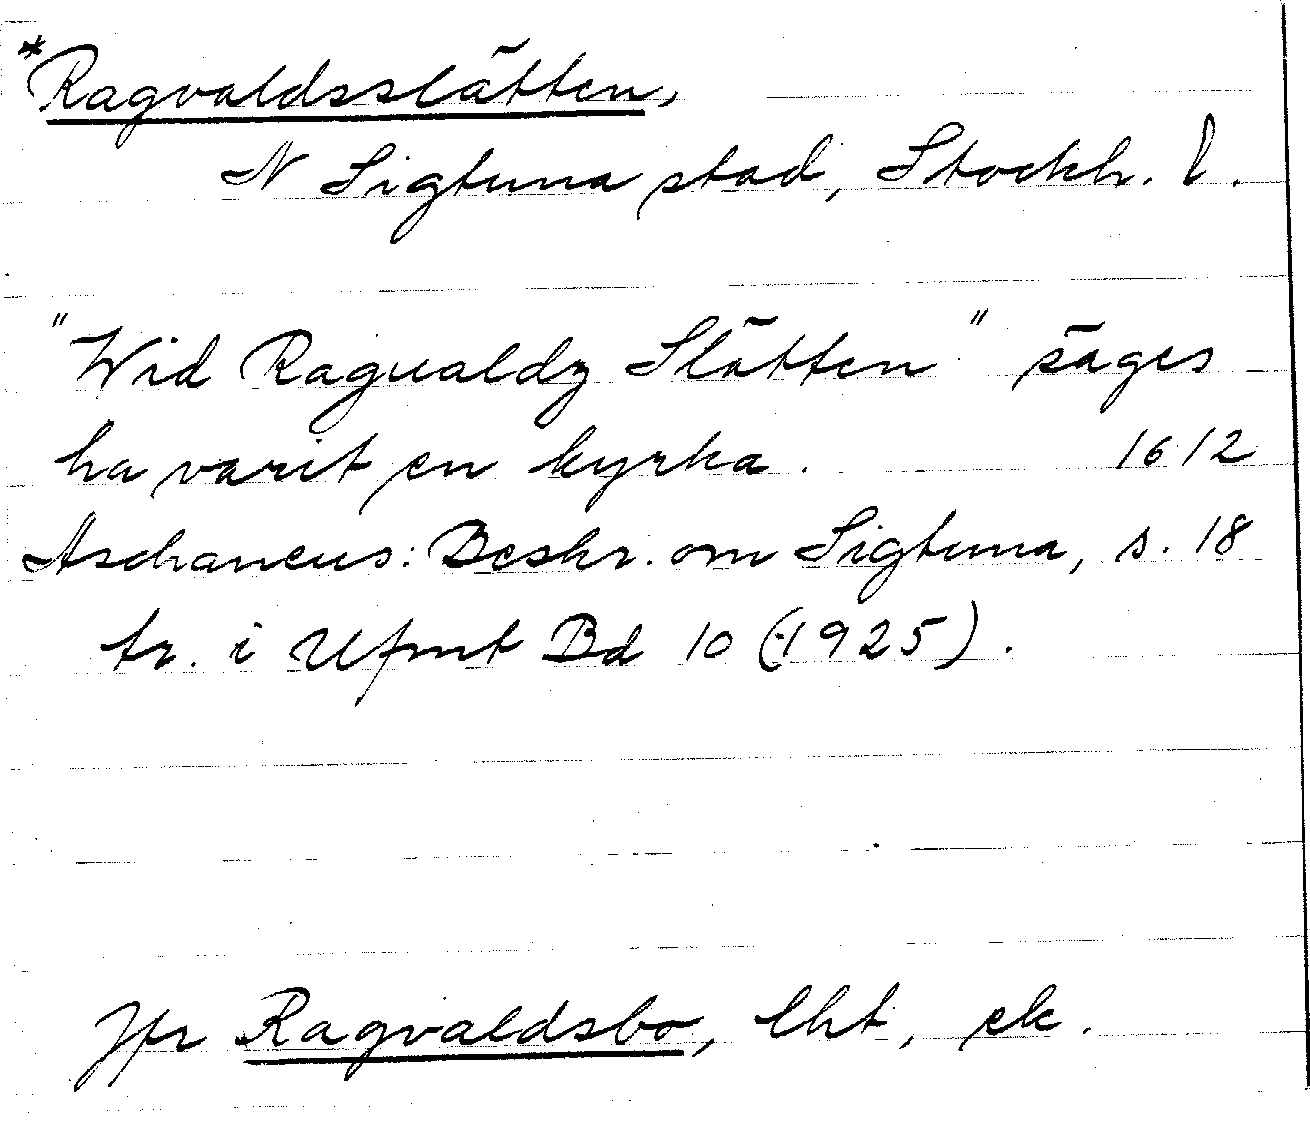 *Ragvaldsslätten,
N Sigtuna stad, Stockh. l.
"Wid Ragualdz Slätten" säges
ha varit en kyrka. 1612
Aschaneus: Beskr. om Sigtuna, s. 18
tr. i Ufmt Bd 10 (1925).
Jfr Ragvaldsbo, lht, ek.